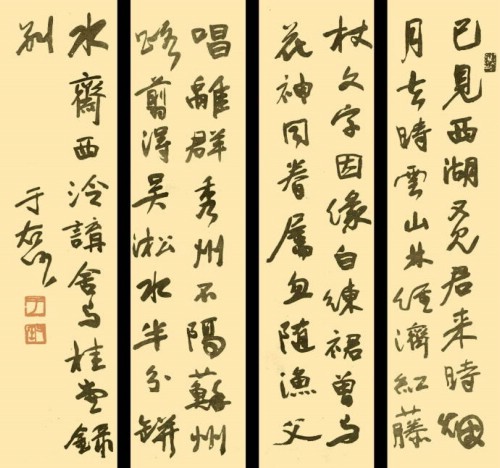 已見西湖又見君来時烟
月去時雲山林經濟紅藤
杖文字因緣白練裙曾与
花神同眷屬且隨漁父
唱離群秀州不隔蘇州
路剪得吳淞水半分缾
水齋西泠舍与桂堂錄
別
于右任